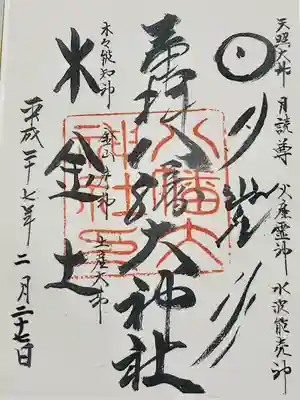 天照大神 月読尊 火産霊神 水波能売神
月
大神社
八幡大神社印
木々能知神 金山彦神 土産大神
木 金 土
平成二十七年 二月二十七日